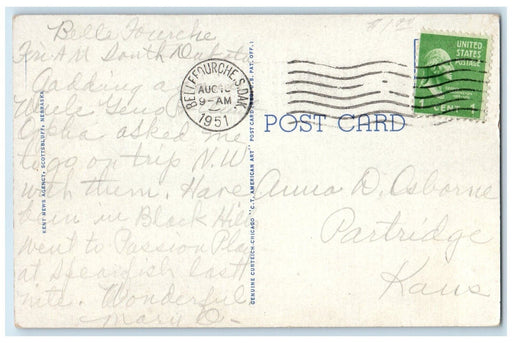 Belle Fourche
Fri AM South Dakota
Adding a
Uncle
asked me
to go on trip N.W.
with them. Have
been in Black Hills
went to Passion Play
at Spearfish last
nite. Wonderful
Mary O-
KENT NEWS AGENCY, SCOTTSBLUFF, NEBRASKA
GENUINE CURTEICH-CHICAGO "C.T. AMERICAN ART" POST CARD PAT. OFF.)
BELLE FOURCHE, S. DAK.
AUG
9-AM
1951
$1.00
UNITED
STATES
POSTAGE
1 CENT 1
POST CARD
Anna D. Osborne
Partridge
Kans